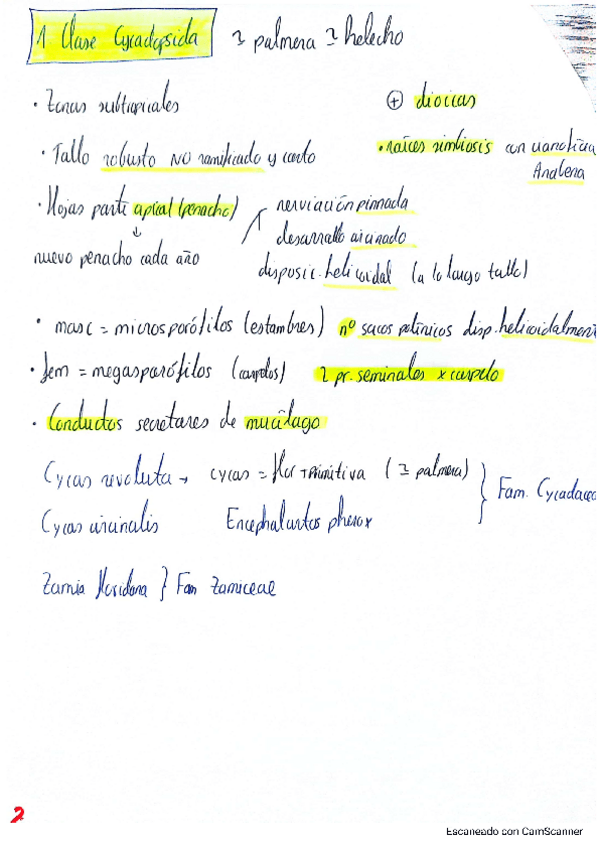 1 Clase Cycadopsida ≃ palmera ≃ helecho
· Zonas subtropicales
⊕ dioicas
· Tallo robusto NO ramificado y corto
· raíces simbiosis con cianoficia
Anabena
· Hojas parte apical (penacho)
↓
nuevo penacho cada año
nerviación pinnada
desarrollo circinado
disposic. helicoidal (a lo largo tallo)
· masc = microsporófilos (estambres) nº sacos polínicos disp. helicoidalment
· fem = megasporófilos (carpelos) 2 pr. seminales x carpelo
· Conductos secretores de mucílago
Cycas revoluta → cycas = flor + primitiva (≃ palmera) } Fam. Cycadacea
Cycas circinalis Encephalartos pherox
Zamia floridana } Fam Zamiceae
2
Escaneado con CamScanner